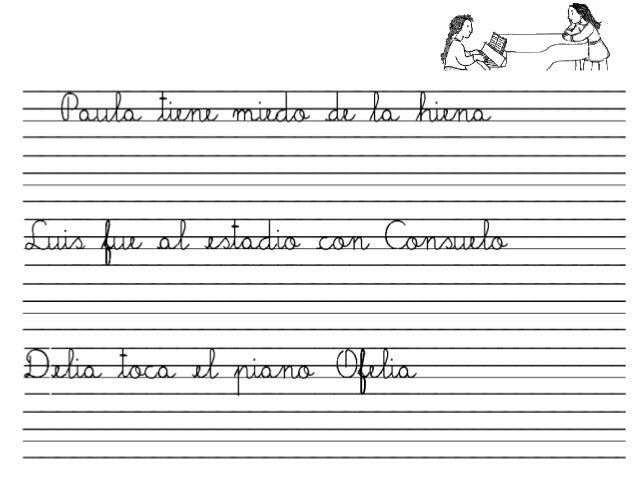 Paula tiene miedo de la hiena
Luis fue al estadio con Consuelo
Delia toca el piano Ofelia